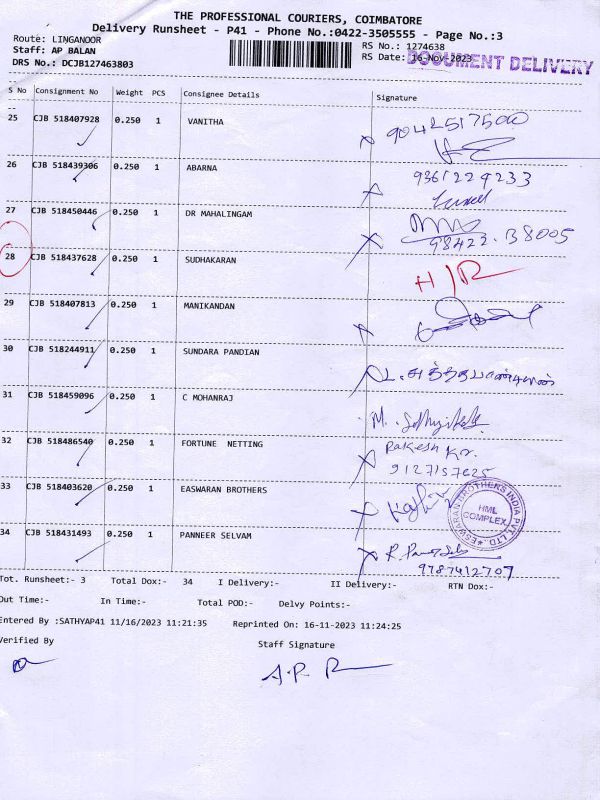 THE PROFESSIONAL COURIERS, COIMBATORE
Delivery Runsheet - P41 - Phone No.:0422-3505555 - Page No.:3
Route: LINGANOOR
RS No.: 1274638
Staff: AP BALAN
RS Date: 16-Nov-2023
DOCUMENT DELIVERY
DRS No.: DCJB127463803
S No Consignment No Weight PCS Consignee Details Signature
25 CJB 518407928 0.250 1 VANITHA 9042517500
26 CJB 518439306 0.250 1 ABARNA 9361229233
27 CJB 518450446 0.250 1 DR MAHALINGAM 98422.38005
28 CJB 518437628 0.250 1 SUDHAKARAN H/R
29 CJB 518407813 0.250 1 MANIKANDAN
30 CJB 518244911 0.250 1 SUNDARA PANDIAN
31 CJB 518459096 0.250 1 C MOHANRAJ M.
32 CJB 518486540 0.250 1 FORTUNE NETTING Rakesh Kr.
9127157625
33 CJB 518403620 0.250 1 EASWARAN BROTHERS
ESWARAN BROTHERS INDIA PVT. LTD.
HML
COMPLEX
34 CJB 518431493 0.250 1 PANNEER SELVAM
9787412707
Tot. Runsheet:- 3 Total Dox:- 34 I Delivery:- II Delivery:- RTN Dox:-
Out Time:- In Time:- Total POD:- Delvy Points:-
Entered By :SATHYAP41 11/16/2023 11:21:35 Reprinted On: 16-11-2023 11:24:25
Verified By Staff Signature